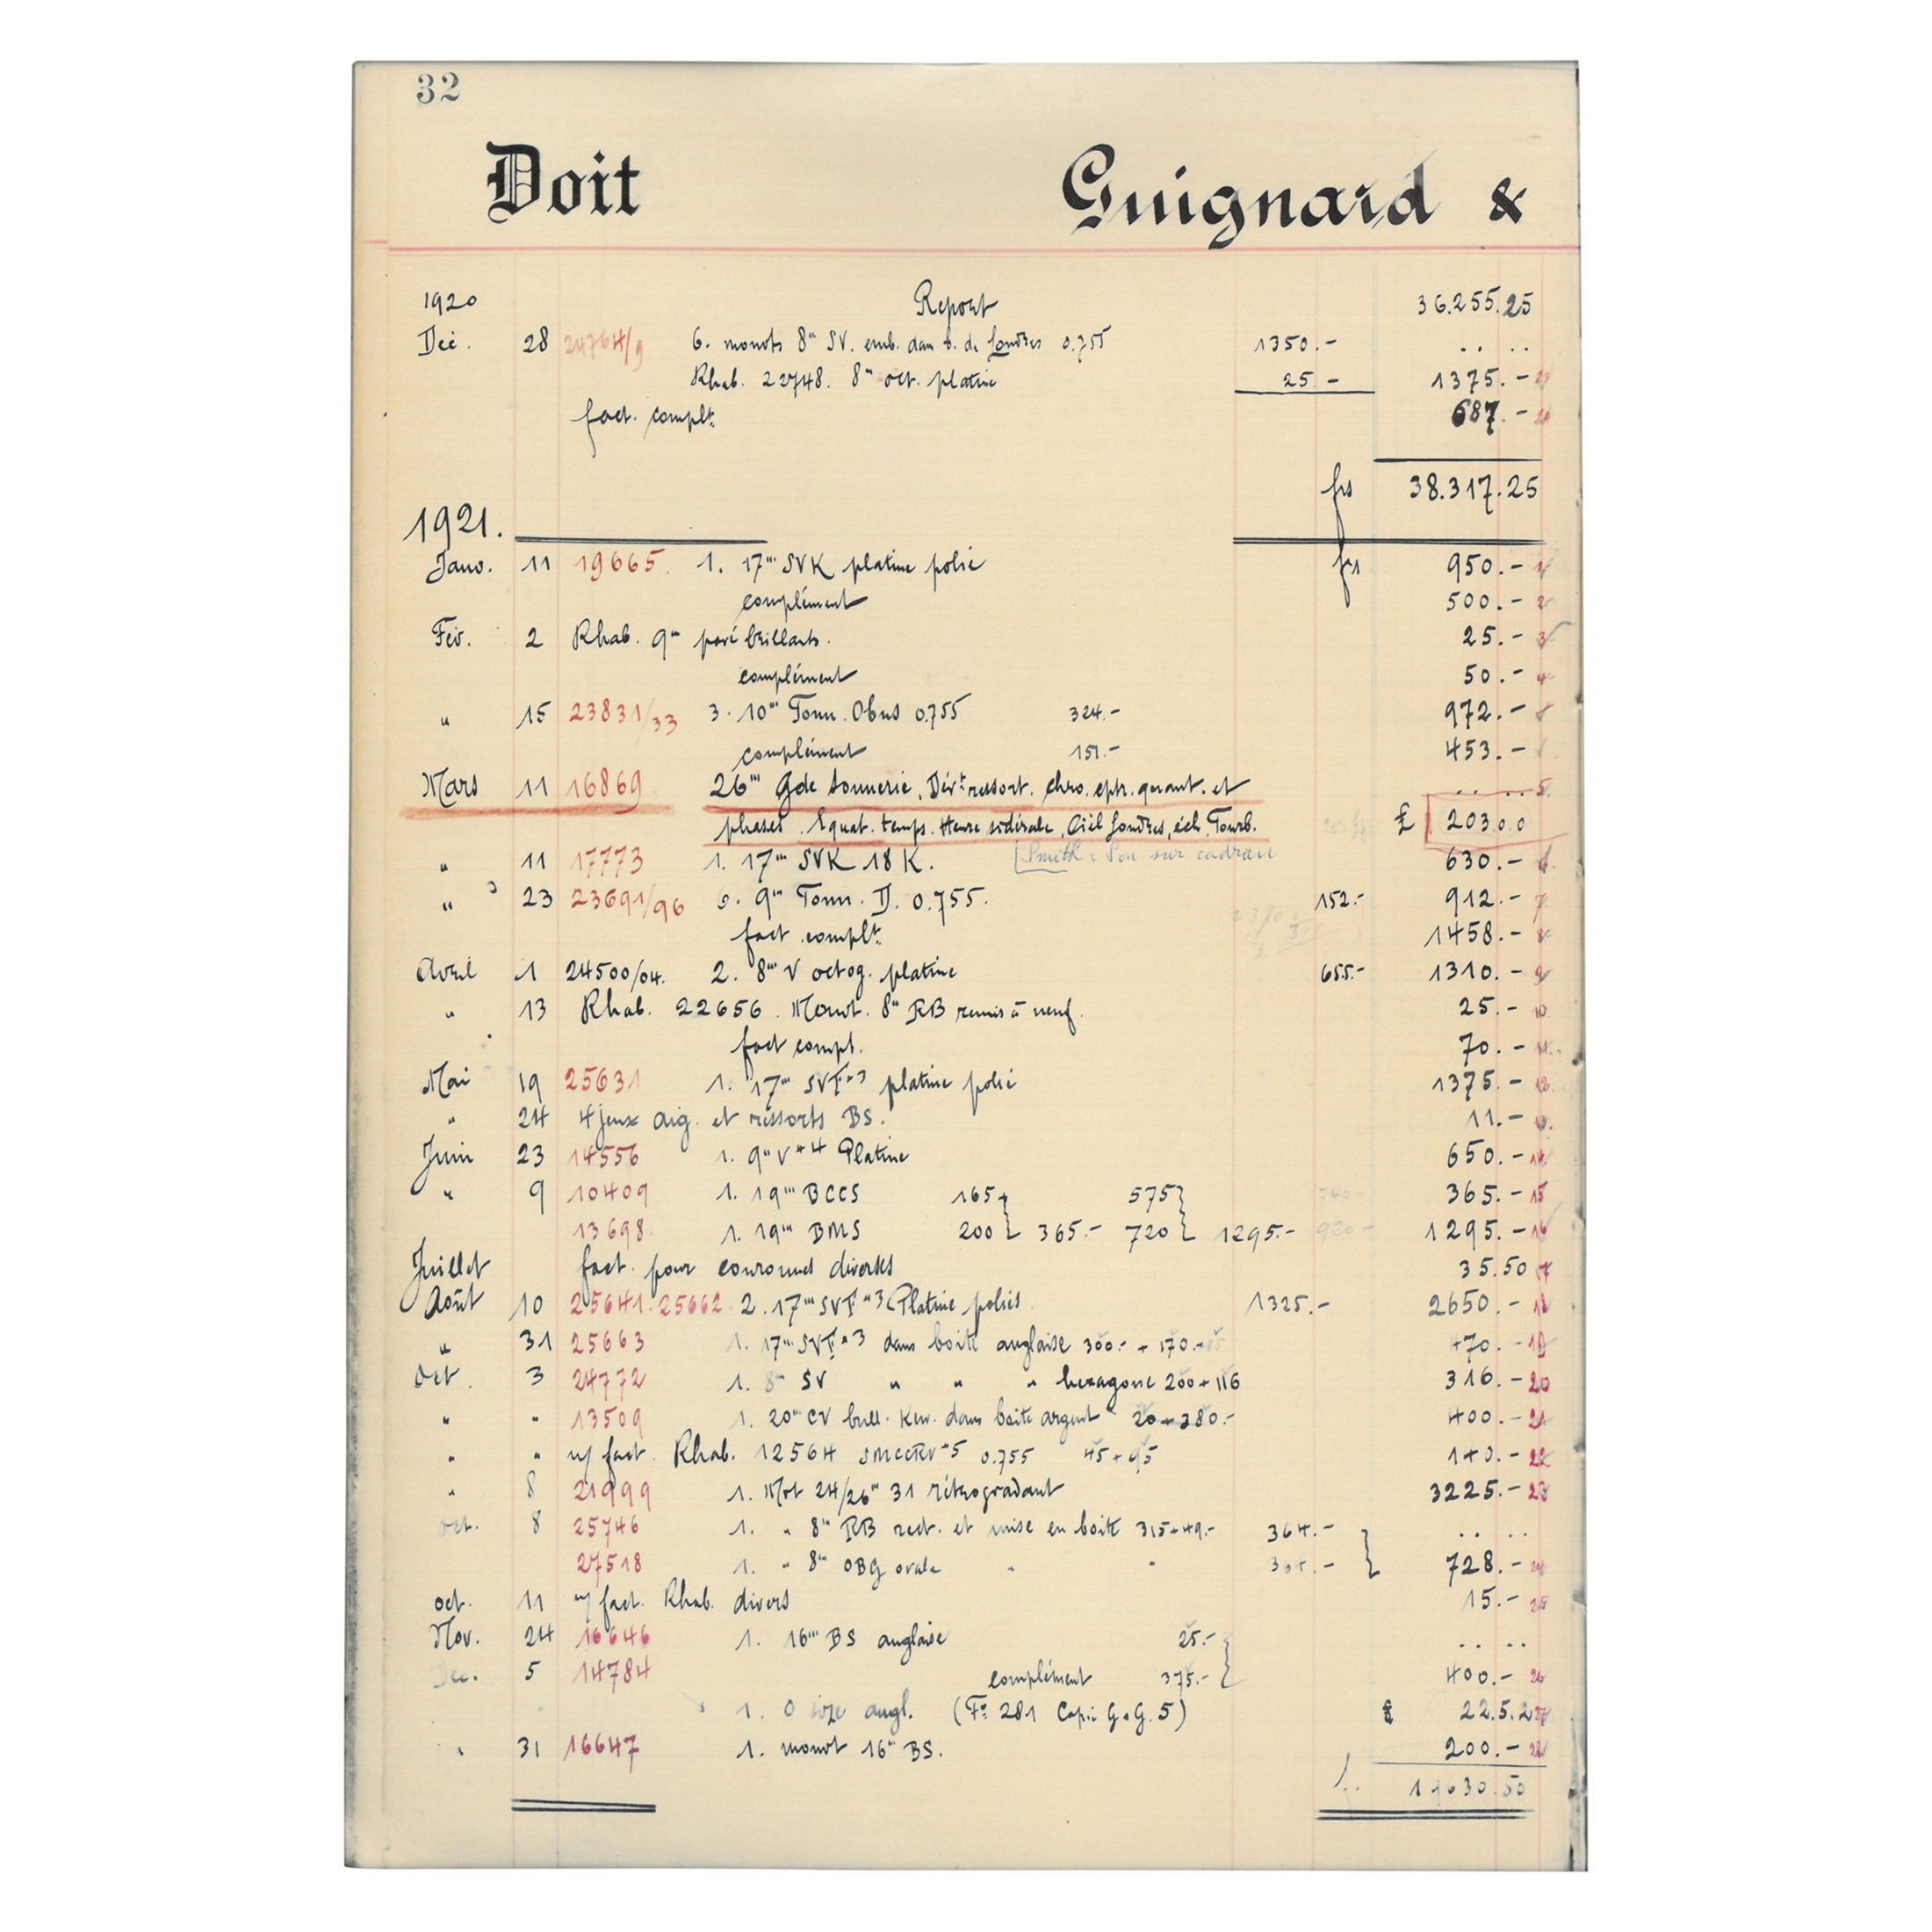 32
Doit Guignard &
1920 Report 36.255.25
Déc. 28 24764/9 6. monots 8''' SV. emb. dans b. de Londres 0.755 1350.- .. ..
Rhab. 22748. 8''' oct. platine 25.- 1375.-
fact. complt. 687.-
frs 38.317.25
1921.
Janv. 11 19665. 1. 17''' SVK platine polie frs 950.- 1
complément 500.- 2
Fév. 2 Rhab. 9''' pavé brillants. 25.- 3
complément 50.- 4
" 15 23831/33 3. 10''' Tonn. Obus 0.755 324.- 972.-
complément 151.- 453.-
Mars 11 16869 26''' Gde sonnerie, Dévt. ressort. chro. cptr. quant. et .. .. 5.
phases. Equat. temps. Heure sidérale, Ciel Londres, éch. Tourb. £ 203 0 0
" 11 17773 1. 17''' SVK 18 K. [Smith: Son sur cadran 630.- 6.
" 23 23691/96 6. 9''' Tonn. D. 0.755. 152.- 912.- 7.
fact. complt. 1458.- 8
Avril 1 24500/04. 2. 8''' V octog. platine 655.- 1310.- 9
" 13 Rhab. 22656. Mouvt. 8''' RB remis à neuf. 25.- 10
fact compl. 70.- 11.
Mai 19 25631 1. 17''' SVF #3 platine polie 1375.- 12.
" 24 4 jeux aig. et ressorts BS. 11.-
Juin 23 14556 1. 9''' V #4 Platine 650.- 14
" 9 10409 1. 19''' BCCS 165 575 } 740.- 365.- 15
13698. 1. 19''' BMS 200 } 365.- 720 } 1295.- 920- 1295.- 16
Juillet fact. pour couronnes diverses 35.50 17
Août 10 25641. 25662. 2. 17''' SVF #3 Platine polies 1325.- 2650.- 18
" 31 25663 1. 17''' SVF #3 dans boîte anglaise 300.- + 170.- 470.- 19
Oct. 3 24772 1. 8''' SV " " " hexagone 200 + 116 316.- 20
" " 13509 1. 20''' CV bull. Kew. dans boîte argent 20 + 380.- 400.- 21
" " n/ fact. Rhab. 12564 SMCCRV #5 0.755 45 + 95 140.- 22
" 8 21999 1. Mvt 24/26''' 31 rétrogradant 3225.- 23
oct. 8 25746 1. " 8''' RB rect. et mise en boîte 315+49.- 364.- .. ..
27518 1. " 8''' OBG ovale " " 364.- } 728.- 24
oct. 11 n/ fact. Rhab. divers 15.- 25
Nov. 24 16646 1. 16''' BS anglaise 25.- .. ..
Dec. 5 14784 complément 375.- } 400.- 26
1. 0 size angl. (F° 281 Copie G.G. 5) £ 22.5.2 27
" 31 16647 1. monvt 16''' BS. 200.- 28
f. 19630.50